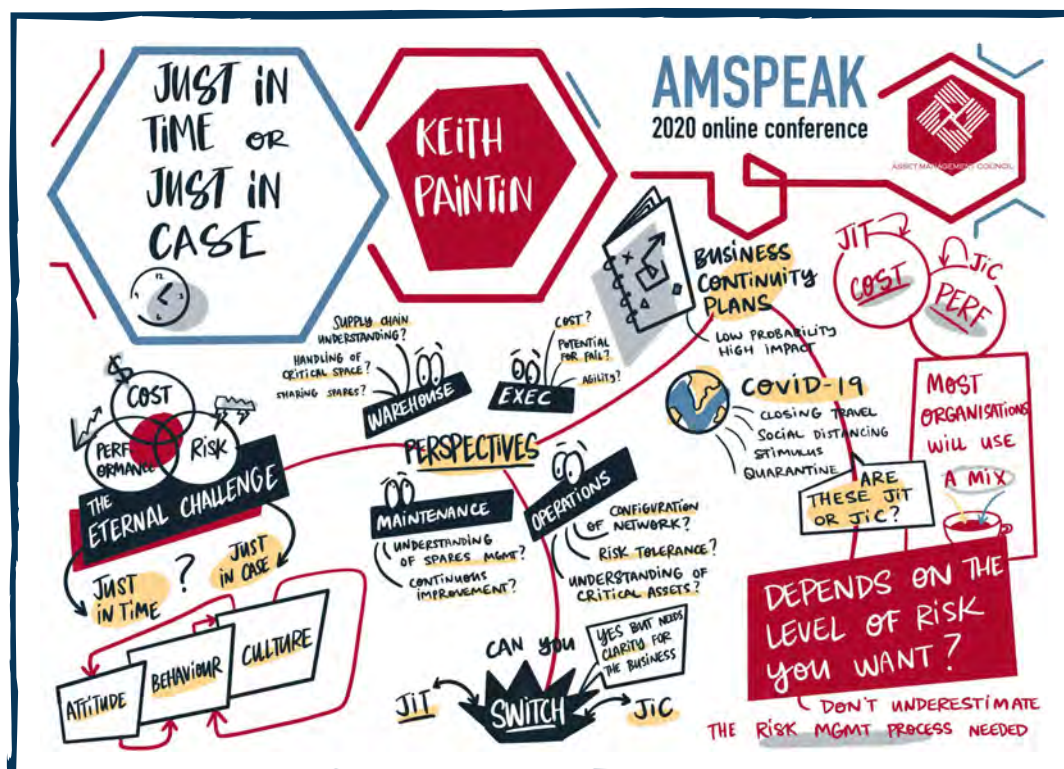 JUST IN
TIME OR
JUST IN
CASE
12
3
6
KEITH
PAINTIN
AMSPEAK
2020 online conference
ASSET MANAGEMENT COUNCIL
$
COST
PERF
ORMANCE
RISK
THE
ETERNAL CHALLENGE
JUST
IN TIME
?
JUST
IN CASE
ATTITUDE
BEHAVIOUR
CULTURE
SUPPLY CHAIN
UNDERSTANDING?
HANDLING OF
CRITICAL SPACE?
SHARING SPARES?
WAREHOUSE
COST?
POTENTIAL
FOR FAIL?
AGILITY?
EXEC
PERSPECTIVES
MAINTENANCE
UNDERSTANDING
OF SPARES MGMT?
CONTINUOUS
IMPROVEMENT?
OPERATIONS
CONFIGURATION
OF NETWORK?
RISK TOLERANCE?
UNDERSTANDING OF
CRITICAL ASSETS?
CAN YOU
SWITCH
JIT
JIC
YES BUT NEEDS
CLARITY FOR
THE BUSINESS
BUSINESS
CONTINUITY
PLANS
LOW PROBABILITY
HIGH IMPACT
COVID-19
CLOSING TRAVEL
SOCIAL DISTANCING
STIMULUS
QUARANTINE
ARE
THESE JIT
OR JIC?
JIT
COST
JIC
PERF
MOST
ORGANISATIONS
WILL USE
A MIX
DEPENDS ON THE
LEVEL OF RISK
YOU WANT?
DON'T UNDERESTIMATE
THE RISK MGMT PROCESS NEEDED